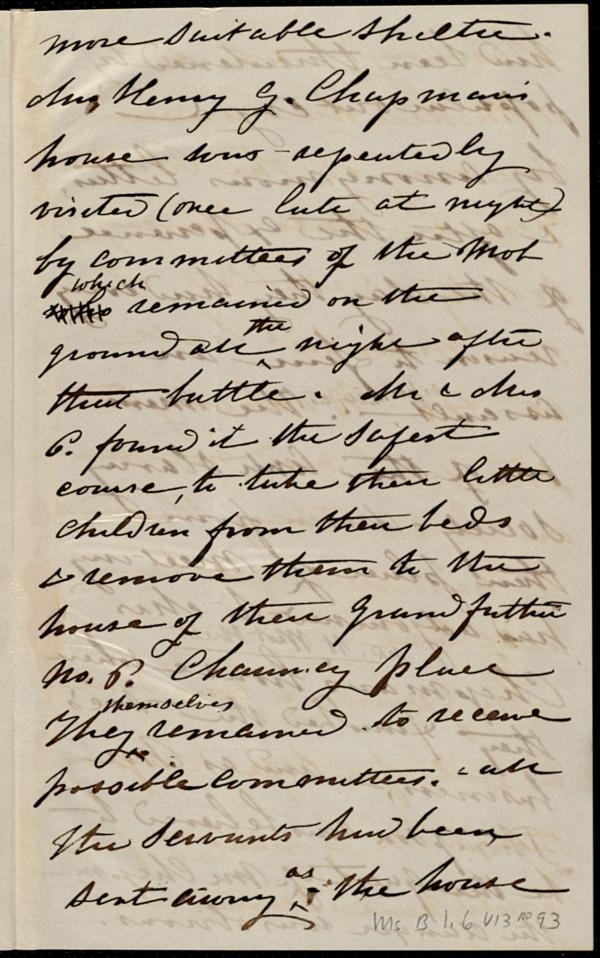 more suitable shelter.
Mrs Henry G. Chapman's
house was repeatedly
visited (once late at night)
by committees of the Mob
which
remained on the
ground all the night after
that battle. Mr & Mrs
C. found it the safest
course, to take their little
children from their beds
& remove them to the
house of their Grandfather
No. Chauncy place
themselves
They remained to receive
possible committees. all
the servants had been
sent away as the house
Ms B 1.6 V13 no 93